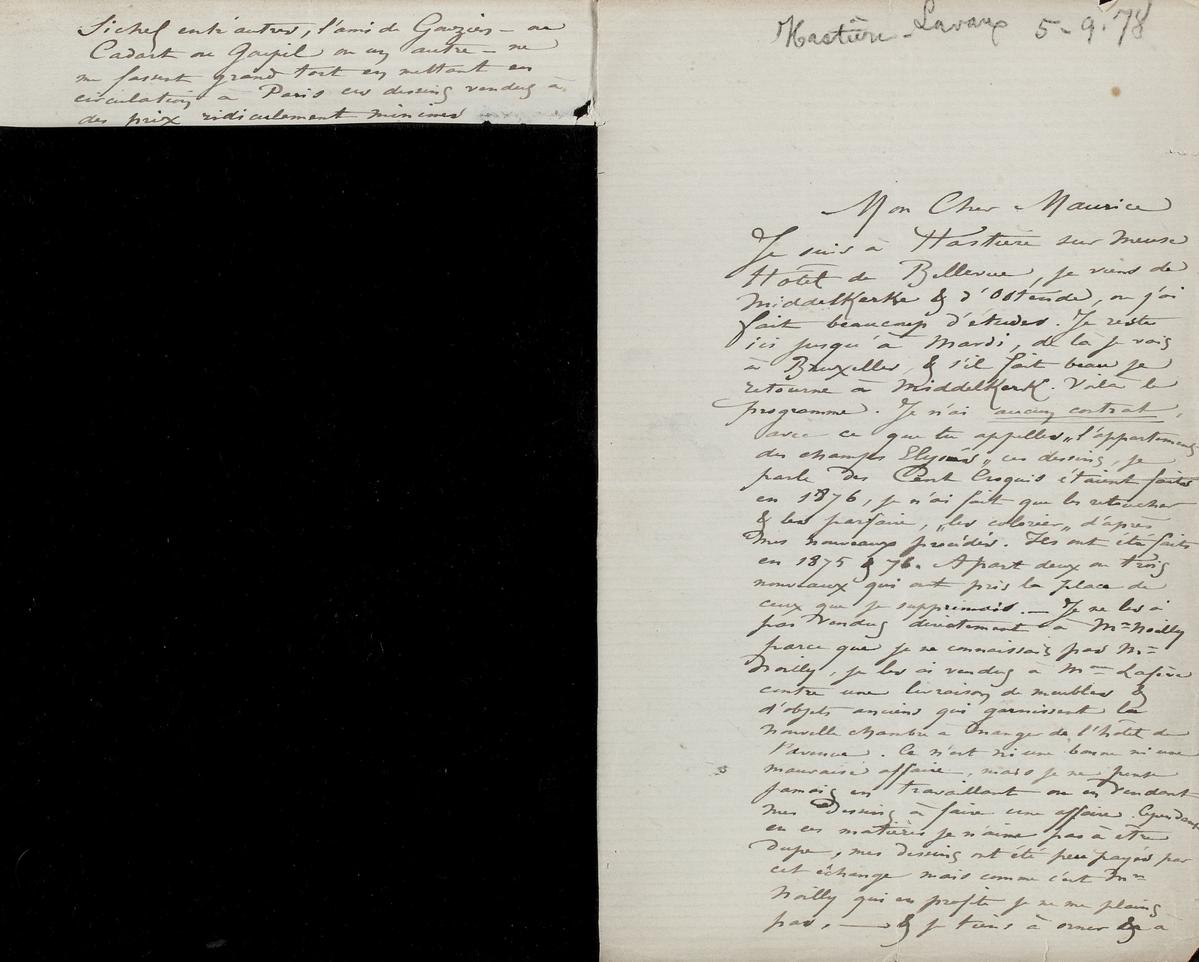 Sichel entr'autres, l'ami de Gouzien – ou
Cadart ou Goupil ou un autre – ne
me fassent grand tort en mettant en
circulation à Paris ces dessins vendus à
des prix ridiculement minimes
Hastière-Lavaux 5-9-78
Mon Cher Maurice
Je suis à Hastière sur Meuse
Hotel de Bellevue, je viens de
Middelkerke & d'Ostende, ou j'ai
fait beaucoup d'études. Je reste
ici jusqu'à Mardi, de là je vais
à Bruxelles, & s'il fait beau je
retourne à Middelkerk. Voilà le
programme. Je n'ai aucun contrat,
avec ce que tu appelles „l'appartement
des champs Elysées„ ces dessins, je
parle des Cent Croquis étaient faits
en 1876, je n'ai fait que les retoucher
& les parfaire, „les colorier„ d'après
mes nouveaux procédés. Ils ont été faits
en 1875 & 76. Apart deux ou trois
nouveaux qui ont pris la place de
ceux que je supprimais. — Je ne les ai
pas vendus directement à Mr Noilly
parce que je ne connaissais pas Mr
Noilly, je les ai vendus à Mme
contre une livraison de meubles &
d'objets anciens qui garnissent la
nouvelle chambre à manger de l'hôtel de
l'avenue. Ce n'est ni une bonne ni une
mauvaise affaire, mais je ne pense
jamais en travaillant ou en vendant
mes Dessins à faire une affaire. Cependant
en ces matières je n'aime pas à être
dupe, mes dessins ont été peu payés par
cet échange mais comme c'est Mr
Noilly qui en profite je ne me plains
pas, — & je tiens à orner & a